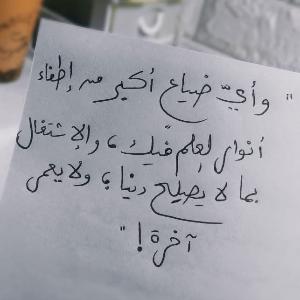 " وأيّ ضياع أكبر من إطفاء
أنوار العلم فيك، والإشتغال
بما لا يصلح دنيا، ولا يعمر
آخرة! "